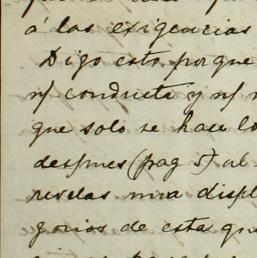 á las exigencias
Digo esto porque
n/ conducta y n/
que solo se hase lo
despues (pag 5) al
revelas una displ
gocios de esta que